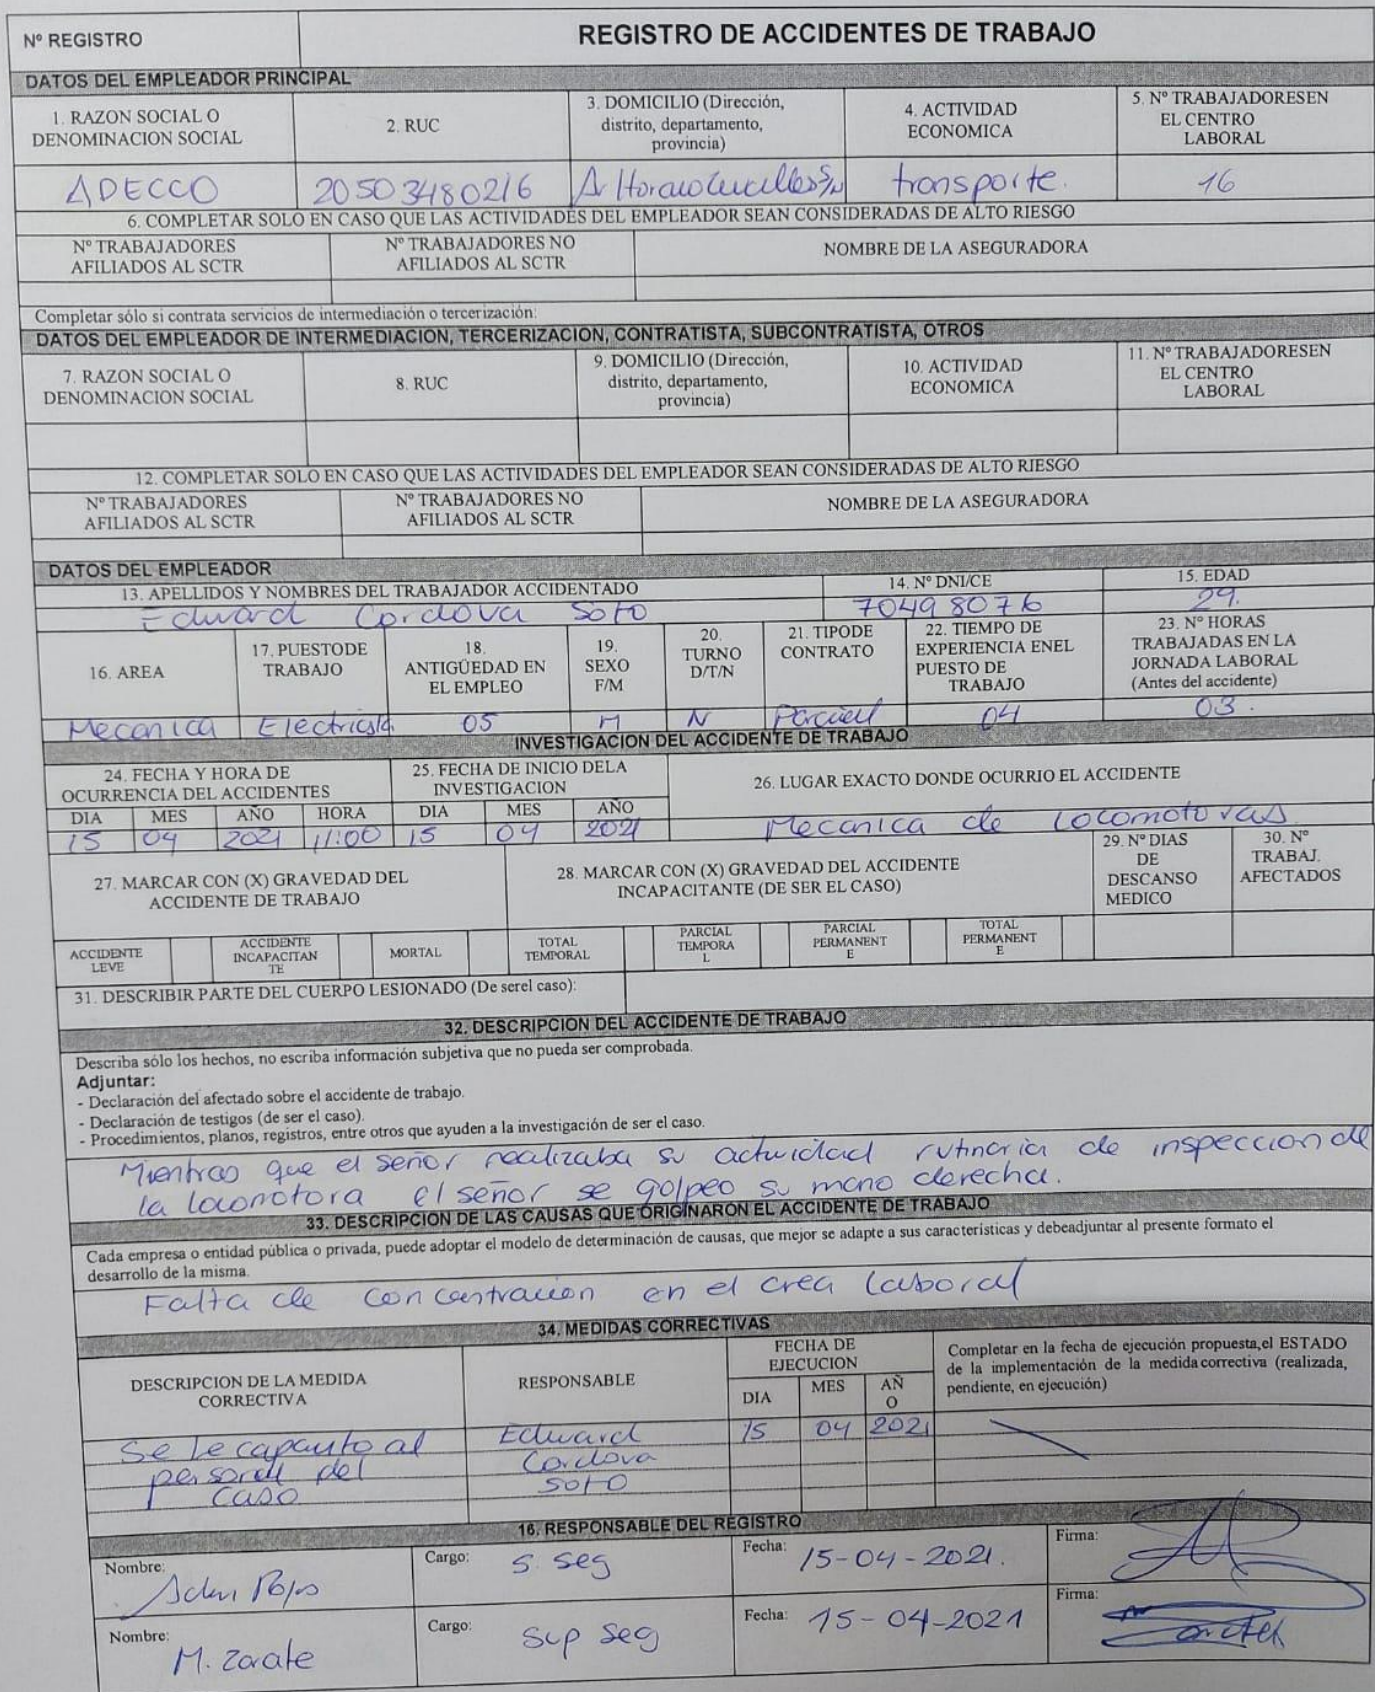 Nº REGISTRO
REGISTRO DE ACCIDENTES DE TRABAJO
DATOS DEL EMPLEADOR PRINCIPAL
1. RAZON SOCIAL O
DENOMINACION SOCIAL
2. RUC
3. DOMICILIO (Dirección,
distrito, departamento,
provincia)
4. ACTIVIDAD
ECONOMICA
5. Nº TRABAJADORESEN
EL CENTRO
LABORAL
ADECCO
20503480216
transporte.
16
6. COMPLETAR SOLO EN CASO QUE LAS ACTIVIDADES DEL EMPLEADOR SEAN CONSIDERADAS DE ALTO RIESGO
Nº TRABAJADORES
AFILIADOS AL SCTR
Nº TRABAJADORES NO
AFILIADOS AL SCTR
NOMBRE DE LA ASEGURADORA
Completar sólo si contrata servicios de intermediación o tercerización:
DATOS DEL EMPLEADOR DE INTERMEDIACION, TERCERIZACION, CONTRATISTA, SUBCONTRATISTA, OTROS
7. RAZON SOCIAL O
DENOMINACION SOCIAL
8. RUC
9. DOMICILIO (Dirección,
distrito, departamento,
provincia)
10. ACTIVIDAD
ECONOMICA
11. Nº TRABAJADORESEN
EL CENTRO
LABORAL
12. COMPLETAR SOLO EN CASO QUE LAS ACTIVIDADES DEL EMPLEADOR SEAN CONSIDERADAS DE ALTO RIESGO
Nº TRABAJADORES
AFILIADOS AL SCTR
Nº TRABAJADORES NO
AFILIADOS AL SCTR
NOMBRE DE LA ASEGURADORA
DATOS DEL EMPLEADOR
13. APELLIDOS Y NOMBRES DEL TRABAJADOR ACCIDENTADO
14. Nº DNI/CE
15. EDAD
Edward Cordova Soto
70498076
29.
16. AREA
17. PUESTODE
TRABAJO
18.
ANTIGÜEDAD EN
EL EMPLEO
19.
SEXO
F/M
20.
TURNO
D/T/N
21. TIPODE
CONTRATO
22. TIEMPO DE
EXPERIENCIA ENEL
PUESTO DE
TRABAJO
23. Nº HORAS
TRABAJADAS EN LA
JORNADA LABORAL
(Antes del accidente)
Mecanica
Electricista
05
M
N
Parcial
04
03.
INVESTIGACION DEL ACCIDENTE DE TRABAJO
24. FECHA Y HORA DE
OCURRENCIA DEL ACCIDENTES
25. FECHA DE INICIO DELA
INVESTIGACION
26. LUGAR EXACTO DONDE OCURRIO EL ACCIDENTE
DIA MES AÑO HORA DIA MES AÑO
15 04 2021 11:00 15 04 2021 Mecanica de Locomotoras
27. MARCAR CON (X) GRAVEDAD DEL
ACCIDENTE DE TRABAJO
28. MARCAR CON (X) GRAVEDAD DEL ACCIDENTE
INCAPACITANTE (DE SER EL CASO)
29. Nº DIAS
DE
DESCANSO
MEDICO
30. Nº
TRABAJ.
AFECTADOS
ACCIDENTE
LEVE
ACCIDENTE
INCAPACITAN
TE
MORTAL
TOTAL
TEMPORAL
PARCIAL
TEMPORA
L
PARCIAL
PERMANENT
E
TOTAL
PERMANENT
E
31. DESCRIBIR PARTE DEL CUERPO LESIONADO (De serel caso):
32. DESCRIPCION DEL ACCIDENTE DE TRABAJO
Describa sólo los hechos, no escriba información subjetiva que no pueda ser comprobada.
Adjuntar:
- Declaración del afectado sobre el accidente de trabajo.
- Declaración de testigos (de ser el caso).
- Procedimientos, planos, registros, entre otros que ayuden a la investigación de ser el caso.
Mientras que el señor realizaba su actividad rutinaria de inspeccion de
la locomotora el señor se golpeo su mano derecha.
33. DESCRIPCION DE LAS CAUSAS QUE ORIGINARON EL ACCIDENTE DE TRABAJO
Cada empresa o entidad pública o privada, puede adoptar el modelo de determinación de causas, que mejor se adapte a sus características y debeadjuntar al presente formato el
desarrollo de la misma.
Falta de concentracion en el area laboral
34. MEDIDAS CORRECTIVAS
DESCRIPCION DE LA MEDIDA
CORRECTIVA
RESPONSABLE
FECHA DE
EJECUCION
DIA MES AÑ
O
Completar en la fecha de ejecución propuesta,el ESTADO
de la implementación de la medidacorrectiva (realizada,
pendiente, en ejecución)
Se le capacito al
personal del
caso
Edward
Cordova
Soto
15 04 2021
16. RESPONSABLE DEL REGISTRO
Nombre:
Cargo: S. Seg
Fecha: 15-04-2021.
Firma:
Nombre: M. Zarate
Cargo: Sup Seg
Fecha: 15-04-2021
Firma: